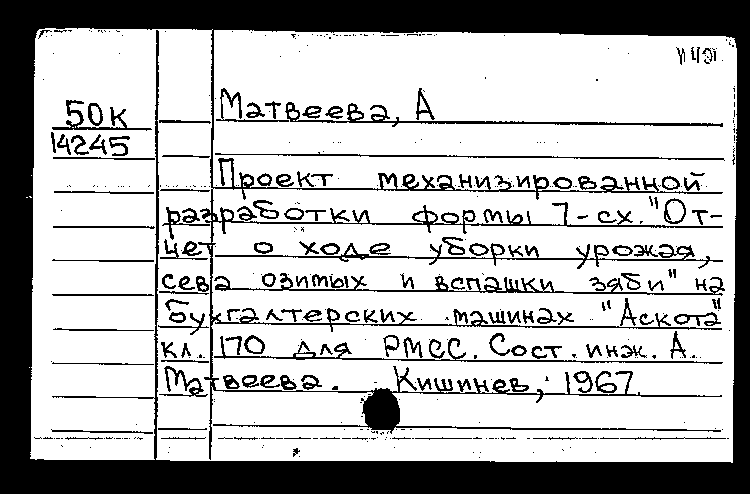 50к
14245
Матвеева, А
Проект механизированной
разработки формы 7-сх. "От-
чет о ходе уборки урожая,
сева озимых и вспашки зяби" на
бухгалтерских машинах "Аскота"
кл. 170 для РМСС. Сост. инж. А.
Матвеева. Кишинев, 1967.